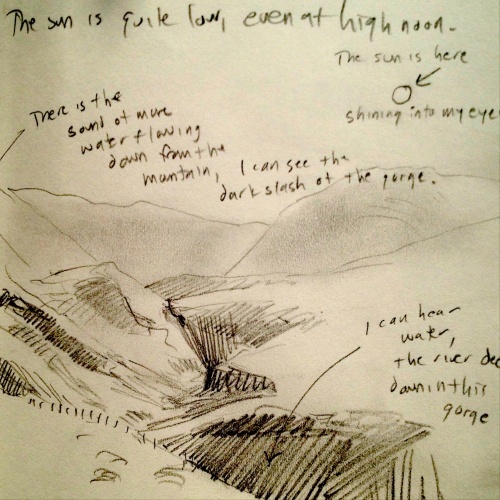 The sun is quite low, even at high noon.
The sun is here
shining into my eye
There is the
sound of more
water flowing
down from the
mountain, I can see the
dark slash of the gorge.
I can hear
water,
the river dee
down in this
gorge